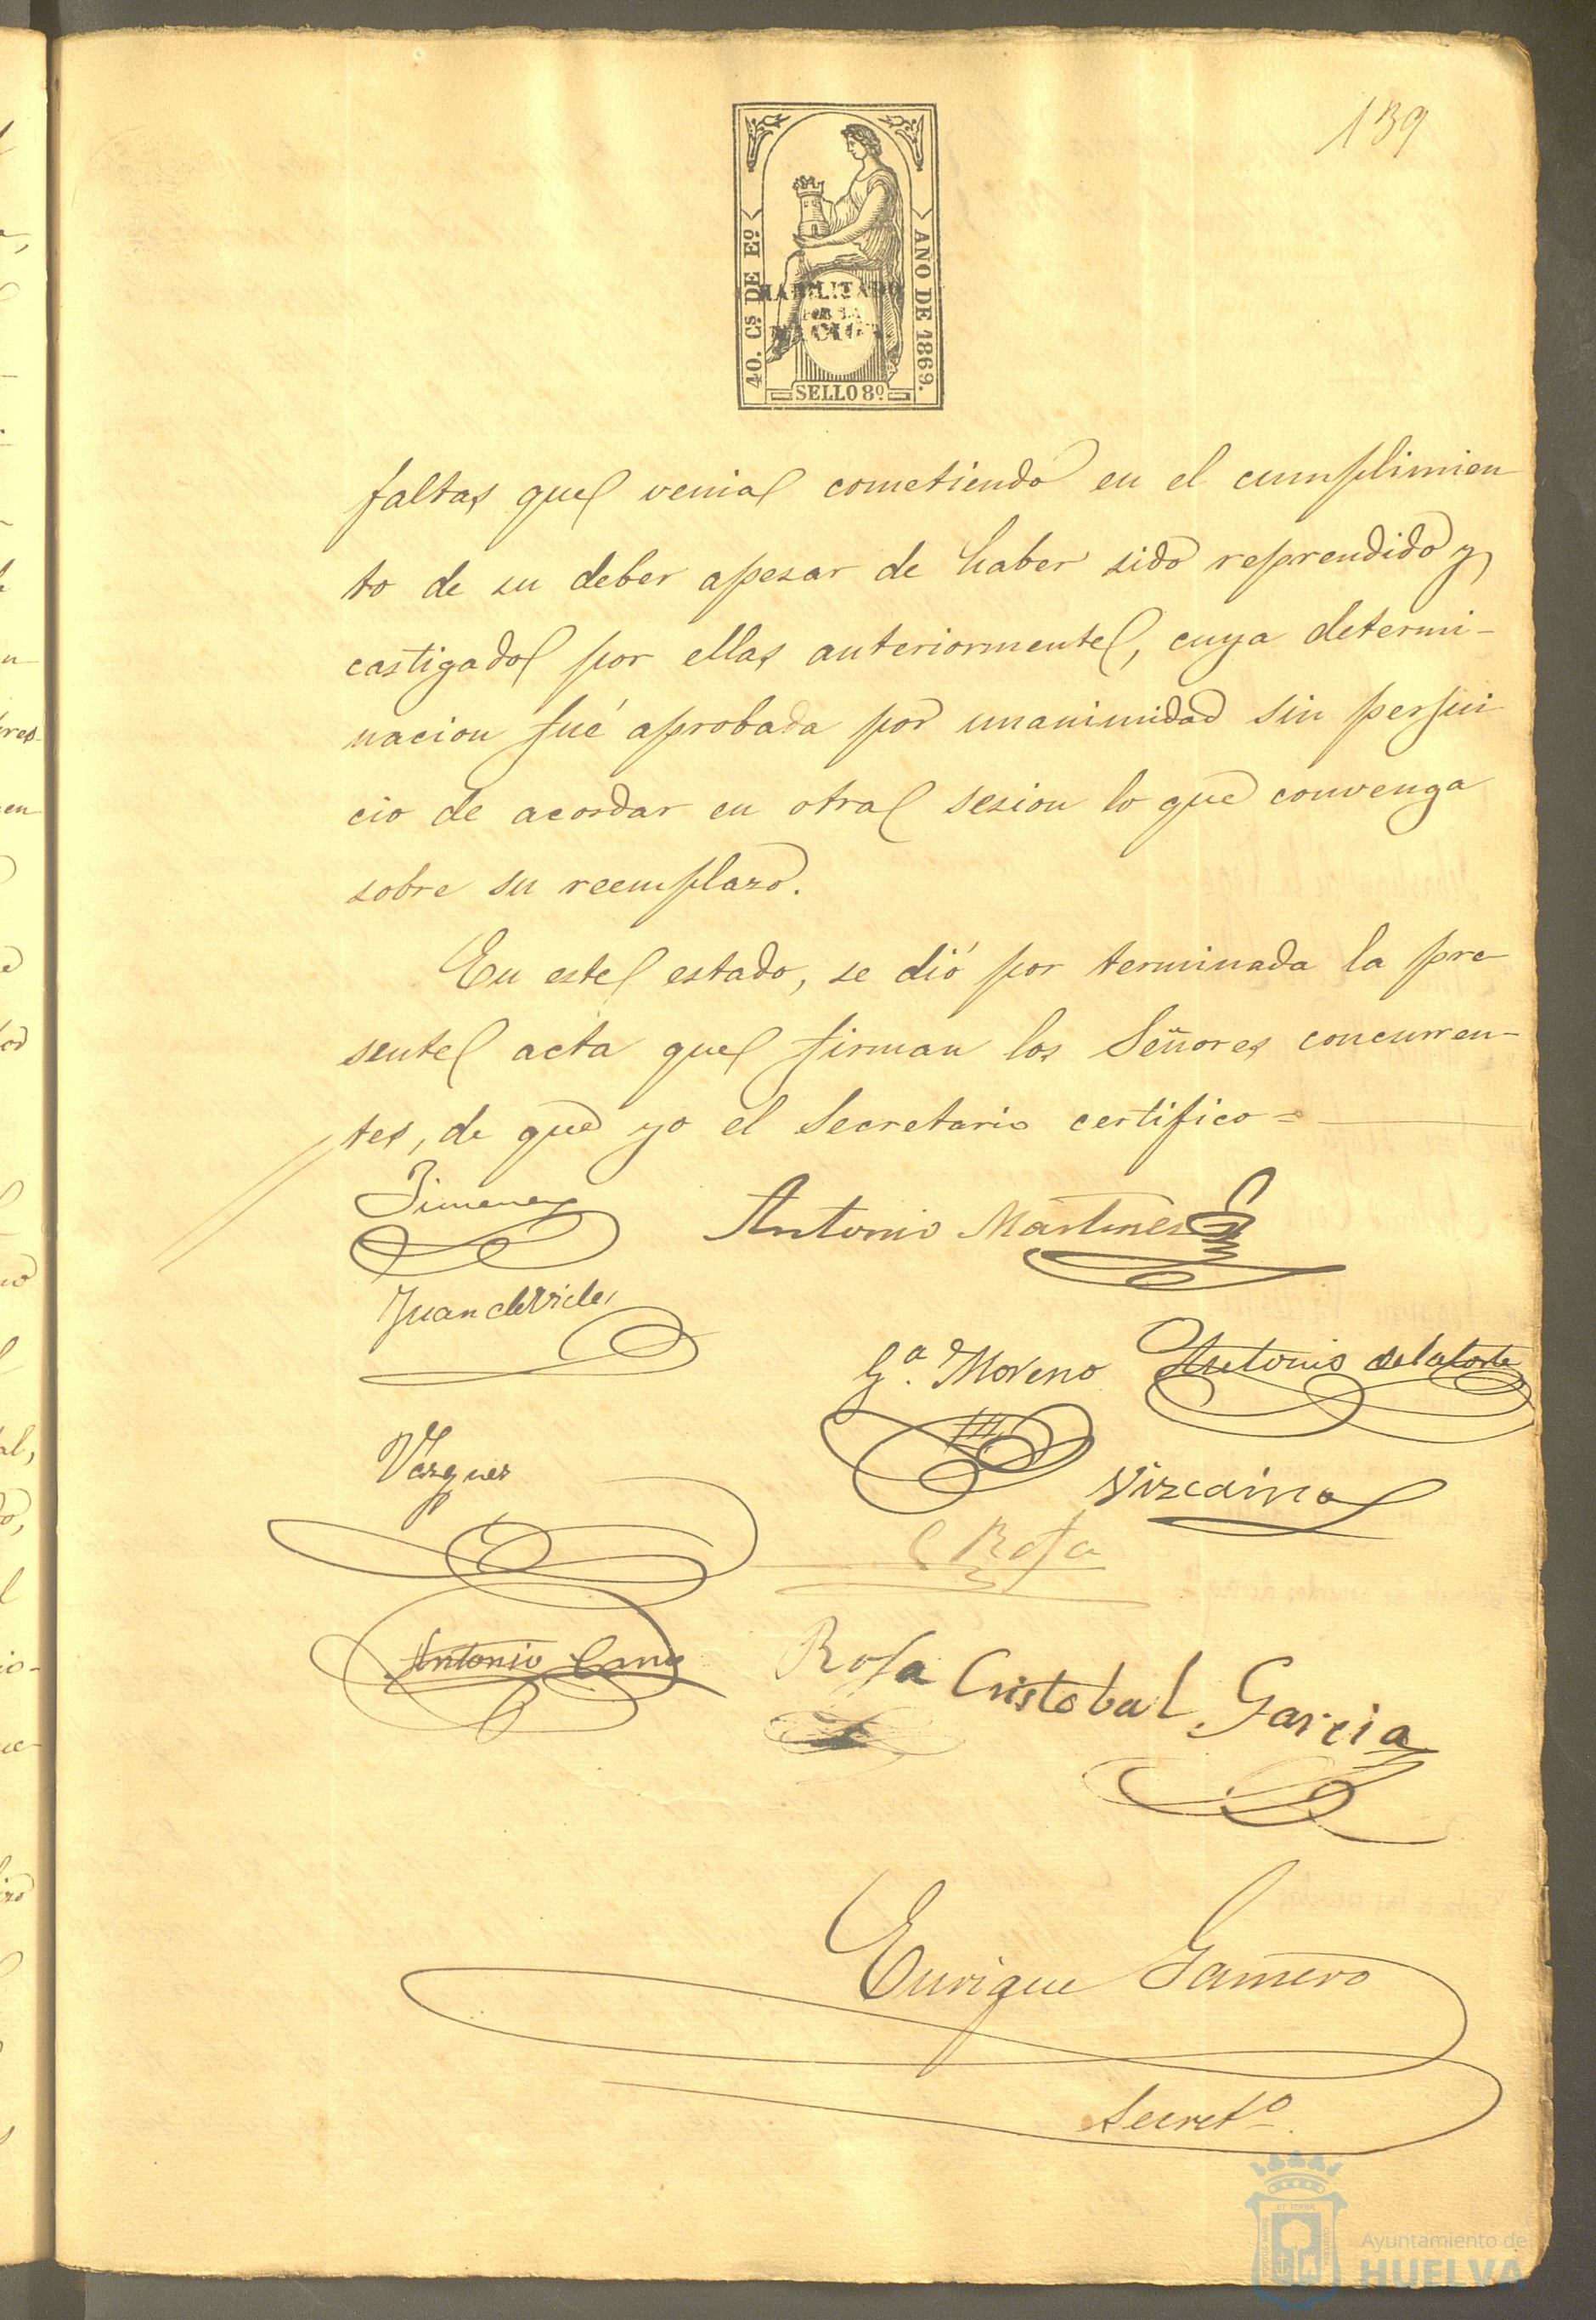 139
40. Cs. DE Eº.
AÑO DE 1869.
HABILITADO
POR LA
NACION
SELLO 8º
faltas que venia cometiendo en el cumplimien
to de su deber apesar de haber sido reprendido y
castigado por ellas anteriormente, cuya determi-
nacion fué aprobada por unanimidad sin perjui
cio de acordar en otra sesion lo que convenga
sobre su reemplazo.
En este estado, se dió por terminada la pre-
sente acta que firman los Señores concurren-
tes, de que yo el Secretario certifico=
Jimenez
Antonio Martinez
Juan de
Gª. Moreno
Antonio de la Corte
Vazquez
Vizcaino
C Rofa
Antonio Cano
Rofa
Cristobal Garcia
Enrique Gamero
Secretº.
Ayuntamiento de
HUELVA